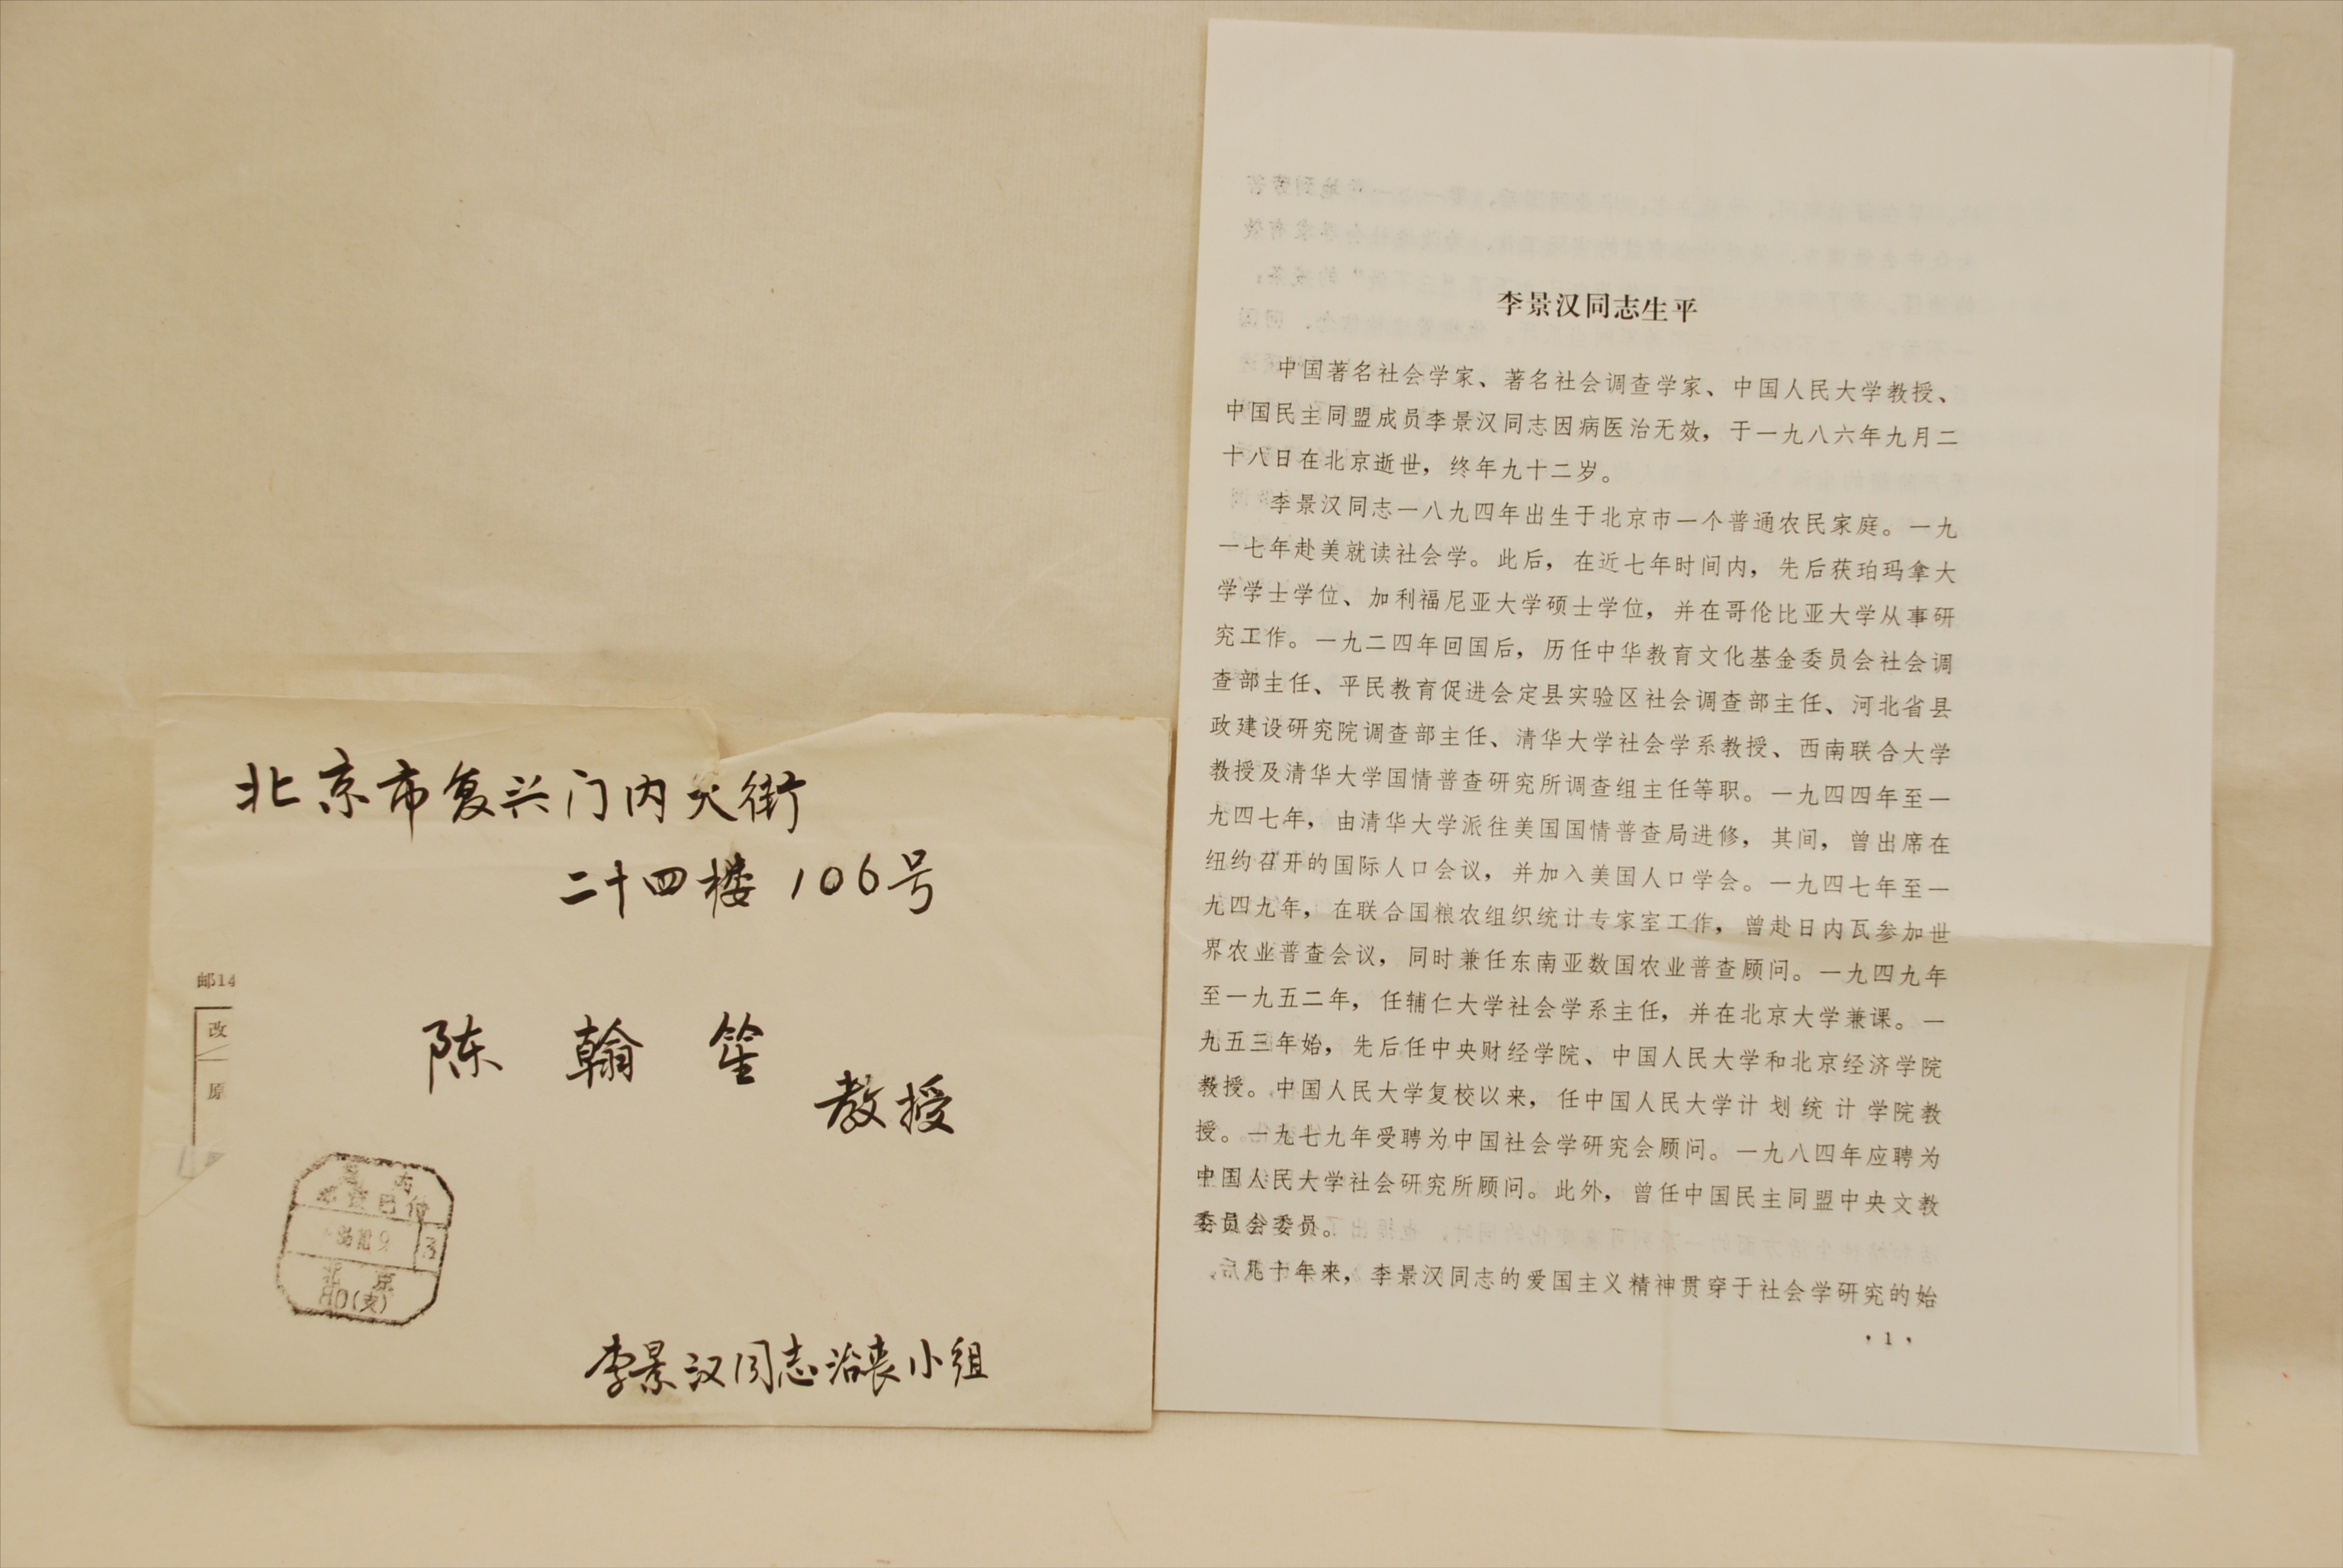 北京市复兴门内大街
二十四楼 106号
邮14
改
原
陈 翰 笙
教授
国内
邮资已付
北 京
80(支)
李景汉同志治丧小组
李景汉同志生平
中国著名社会学家、著名社会调查学家、中国人民大学教授、
中国民主同盟成员李景汉同志因病医治无效，于一九八六年九月二
十八日在北京逝世，终年九十二岁。
李景汉同志一八九四年出生于北京市一个普通农民家庭。一九
一七年赴美就读社会学。此后，在近七年时间内，先后获珀玛拿大
学学士学位、加利福尼亚大学硕士学位，并在哥伦比亚大学从事研
究工作。一九二四年回国后，历任中华教育文化基金委员会社会调
查部主任、平民教育促进会定县实验区社会调查部主任、河北省县
政建设研究院调查部主任、清华大学社会学系教授、西南联合大学
教授及清华大学国情普查研究所调查组主任等职。一九四四年至一
九四七年，由清华大学派往美国国情普查局进修，其间，曾出席在
纽约召开的国际人口会议，并加入美国人口学会。一九四七年至一
九四九年，在联合国粮农组织统计专家室工作，曾赴日内瓦参加世
界农业普查会议，同时兼任东南亚数国农业普查顾问。一九四九年
至一九五二年，任辅仁大学社会学系主任，并在北京大学兼课。一
九五三年始，先后任中央财经学院、中国人民大学和北京经济学院
教授。中国人民大学复校以来，任中国人民大学计划统计学院教
授。一九七九年受聘为中国社会学研究会顾问。一九八四年应聘为
中国人民大学社会研究所顾问。此外，曾任中国民主同盟中央文教
委员会委员。
几十年来，李景汉同志的爱国主义精神贯穿于社会学研究的始
· 1 ·